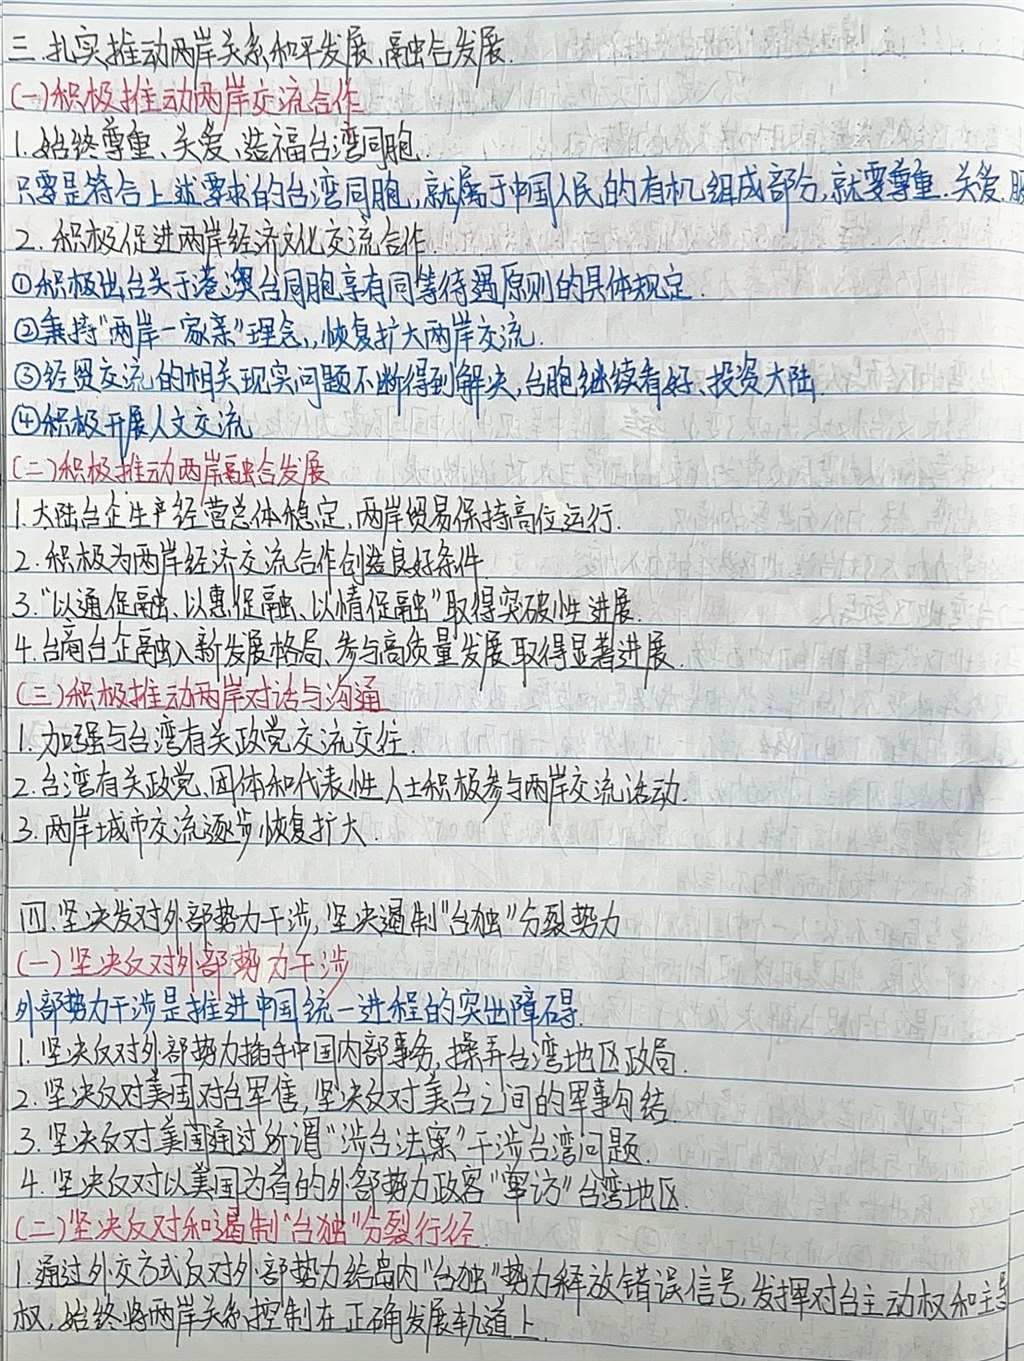 三.扎实推动两岸关系和平发展、融合发展.
(一)积极推动两岸交流合作
1.始终尊重、关爱、造福台湾同胞.
只要是符合上述要求的台湾同胞,就属于中国人民的有机组成部分,就要尊重.关爱.
2.积极促进两岸经济文化交流合作.
①积极出台关于港澳台同胞享有同等待遇原则的具体规定.
②秉持“两岸一家亲”理念,恢复扩大两岸交流.
③经贸交流的相关现实问题不断得到解决,台胞继续看好、投资大陆.
④积极开展人文交流
(二)积极推动两岸融合发展
1.大陆台企生产经营总体稳定,两岸贸易保持高位运行.
2.积极为两岸经济交流合作创造良好条件.
3.“以通促融、以惠促融、以情促融”取得突破性进展.
4.台商台企融入新发展格局、参与高质量发展取得显著进展.
(三)积极推动两岸对话与沟通
1.加强与台湾有关政党交流交往.
2.台湾有关政党、团体和代表性人士积极参与两岸交流活动.
3.两岸城市交流逐步恢复扩大.
四.坚决发对外部势力干涉,坚决遏制“台独”分裂势力
(一)坚决反对外部势力干涉
外部势力干涉是推进中国统一进程的突出障碍.
1.坚决反对外部势力插手中国内部事务,操弄台湾地区政局.
2.坚决反对美国对台军售,坚决反对美台之间的军事勾结.
3.坚决反对美国通过所谓“涉台法案”干涉台湾问题.
4.坚决反对以美国为首的外部势力政客“窜访”台湾地区.
(二)坚决反对和遏制“台独”分裂行径.
1.通过外交方式反对外部势力给岛内“台独”势力释放错误信号,发挥对台主动权和主导
权,始终将两岸关系控制在正确发展轨道上.